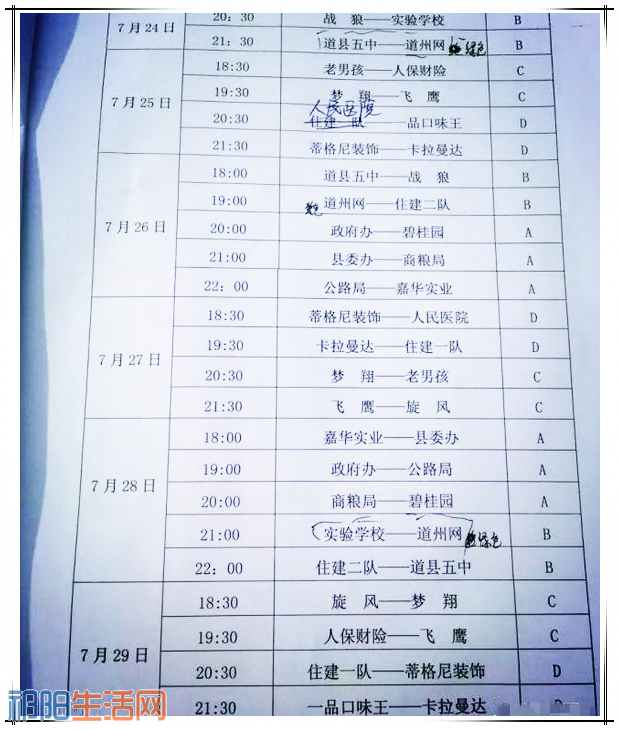 7月24日
20:30 战 狼——实验学校 B
21:30 道县五中——道州网 绿色 B
7月25日
18:30 老男孩——人保财险 C
19:30 梦 翔——飞 鹰 C
人民医院
20:30 住建一队——一品口味王 D
21:30 蒂格尼装饰——卡拉曼达 D
7月26日
18:00 道县五中——战 狼 B
19:00 道州网——住建二队 B
20:00 政府办——碧桂园 A
21:00 县委办——商粮局 A
22:00 公路局——嘉华实业 A
7月27日
18:30 蒂格尼装饰——人民医院 D
19:30 卡拉曼达——住建一队 D
20:30 梦 翔——老男孩 C
21:30 飞 鹰——旋 风 C
7月28日
18:00 嘉华实业——县委办 A
19:00 政府办——公路局 A
20:00 商粮局——碧桂园 A
21:00 实验学校——道州网 绿色 B
22:00 住建二队——道县五中 B
7月29日
18:30 旋 风——梦 翔 C
19:30 人保财险——飞 鹰 C
20:30 住建一队——蒂格尼装饰 D
21:30 一品口味王——卡拉曼达
祁阳生活网